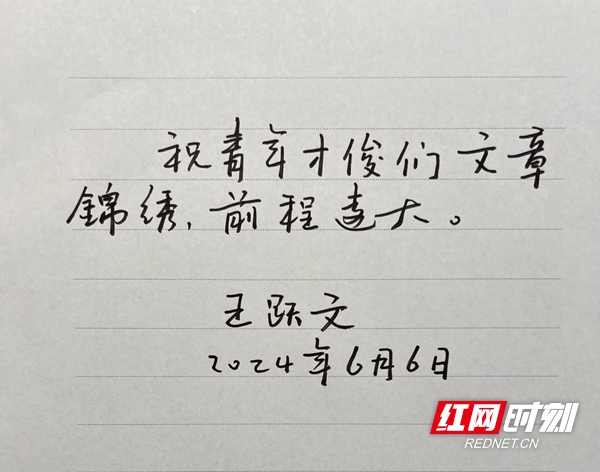 祝青年才俊们文章
錦绣,前程远大。
王跃文
2024年6月6日
红网时刻
REDNET.CN